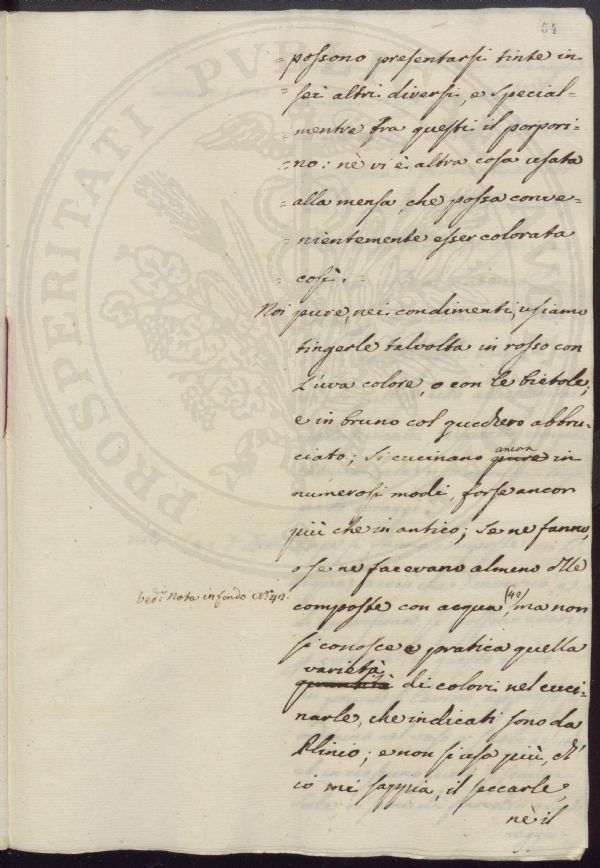 54
= possono presentarsi tinte in
= sei altri diversi, e special=
= mentre tra questi il porpori=
= no: nè vi è altra cosa usata
= alla mensa, che possa conve=
= nientemente esser colorata
= così. =
Noi pure, nei condimenti, usiamo
tingerle talvolta in rosso con
l'uva colore, o con le bietole;
e in bruno col zucchero abbru=
ciato; si cucinano pure ancora in
numerosi modi, forse ancor
più che in antico; se ne fanno,
o se ne facevano almeno
composte con acqua (42), ma non
Ved: Nota in fondo N° 42.
si conosce e pratica quella
varietà
quantità di colori nel cuci=
narle, che indicati sono da
Plinio; e non si usa più, ch'
io mi sappia, il seccarle,
nè il
PROSPERITATI PUBL